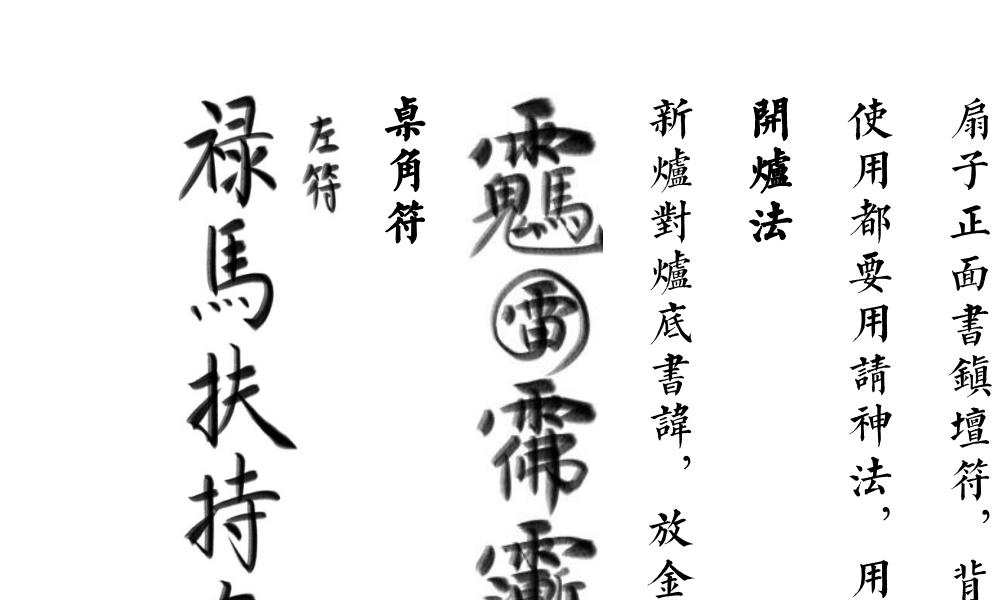 扇子正面書鎮壇符，背
使用都要用請神法，用
開爐法
新爐對爐底書諱，放金
雷
桌角符
左符
祿馬扶持